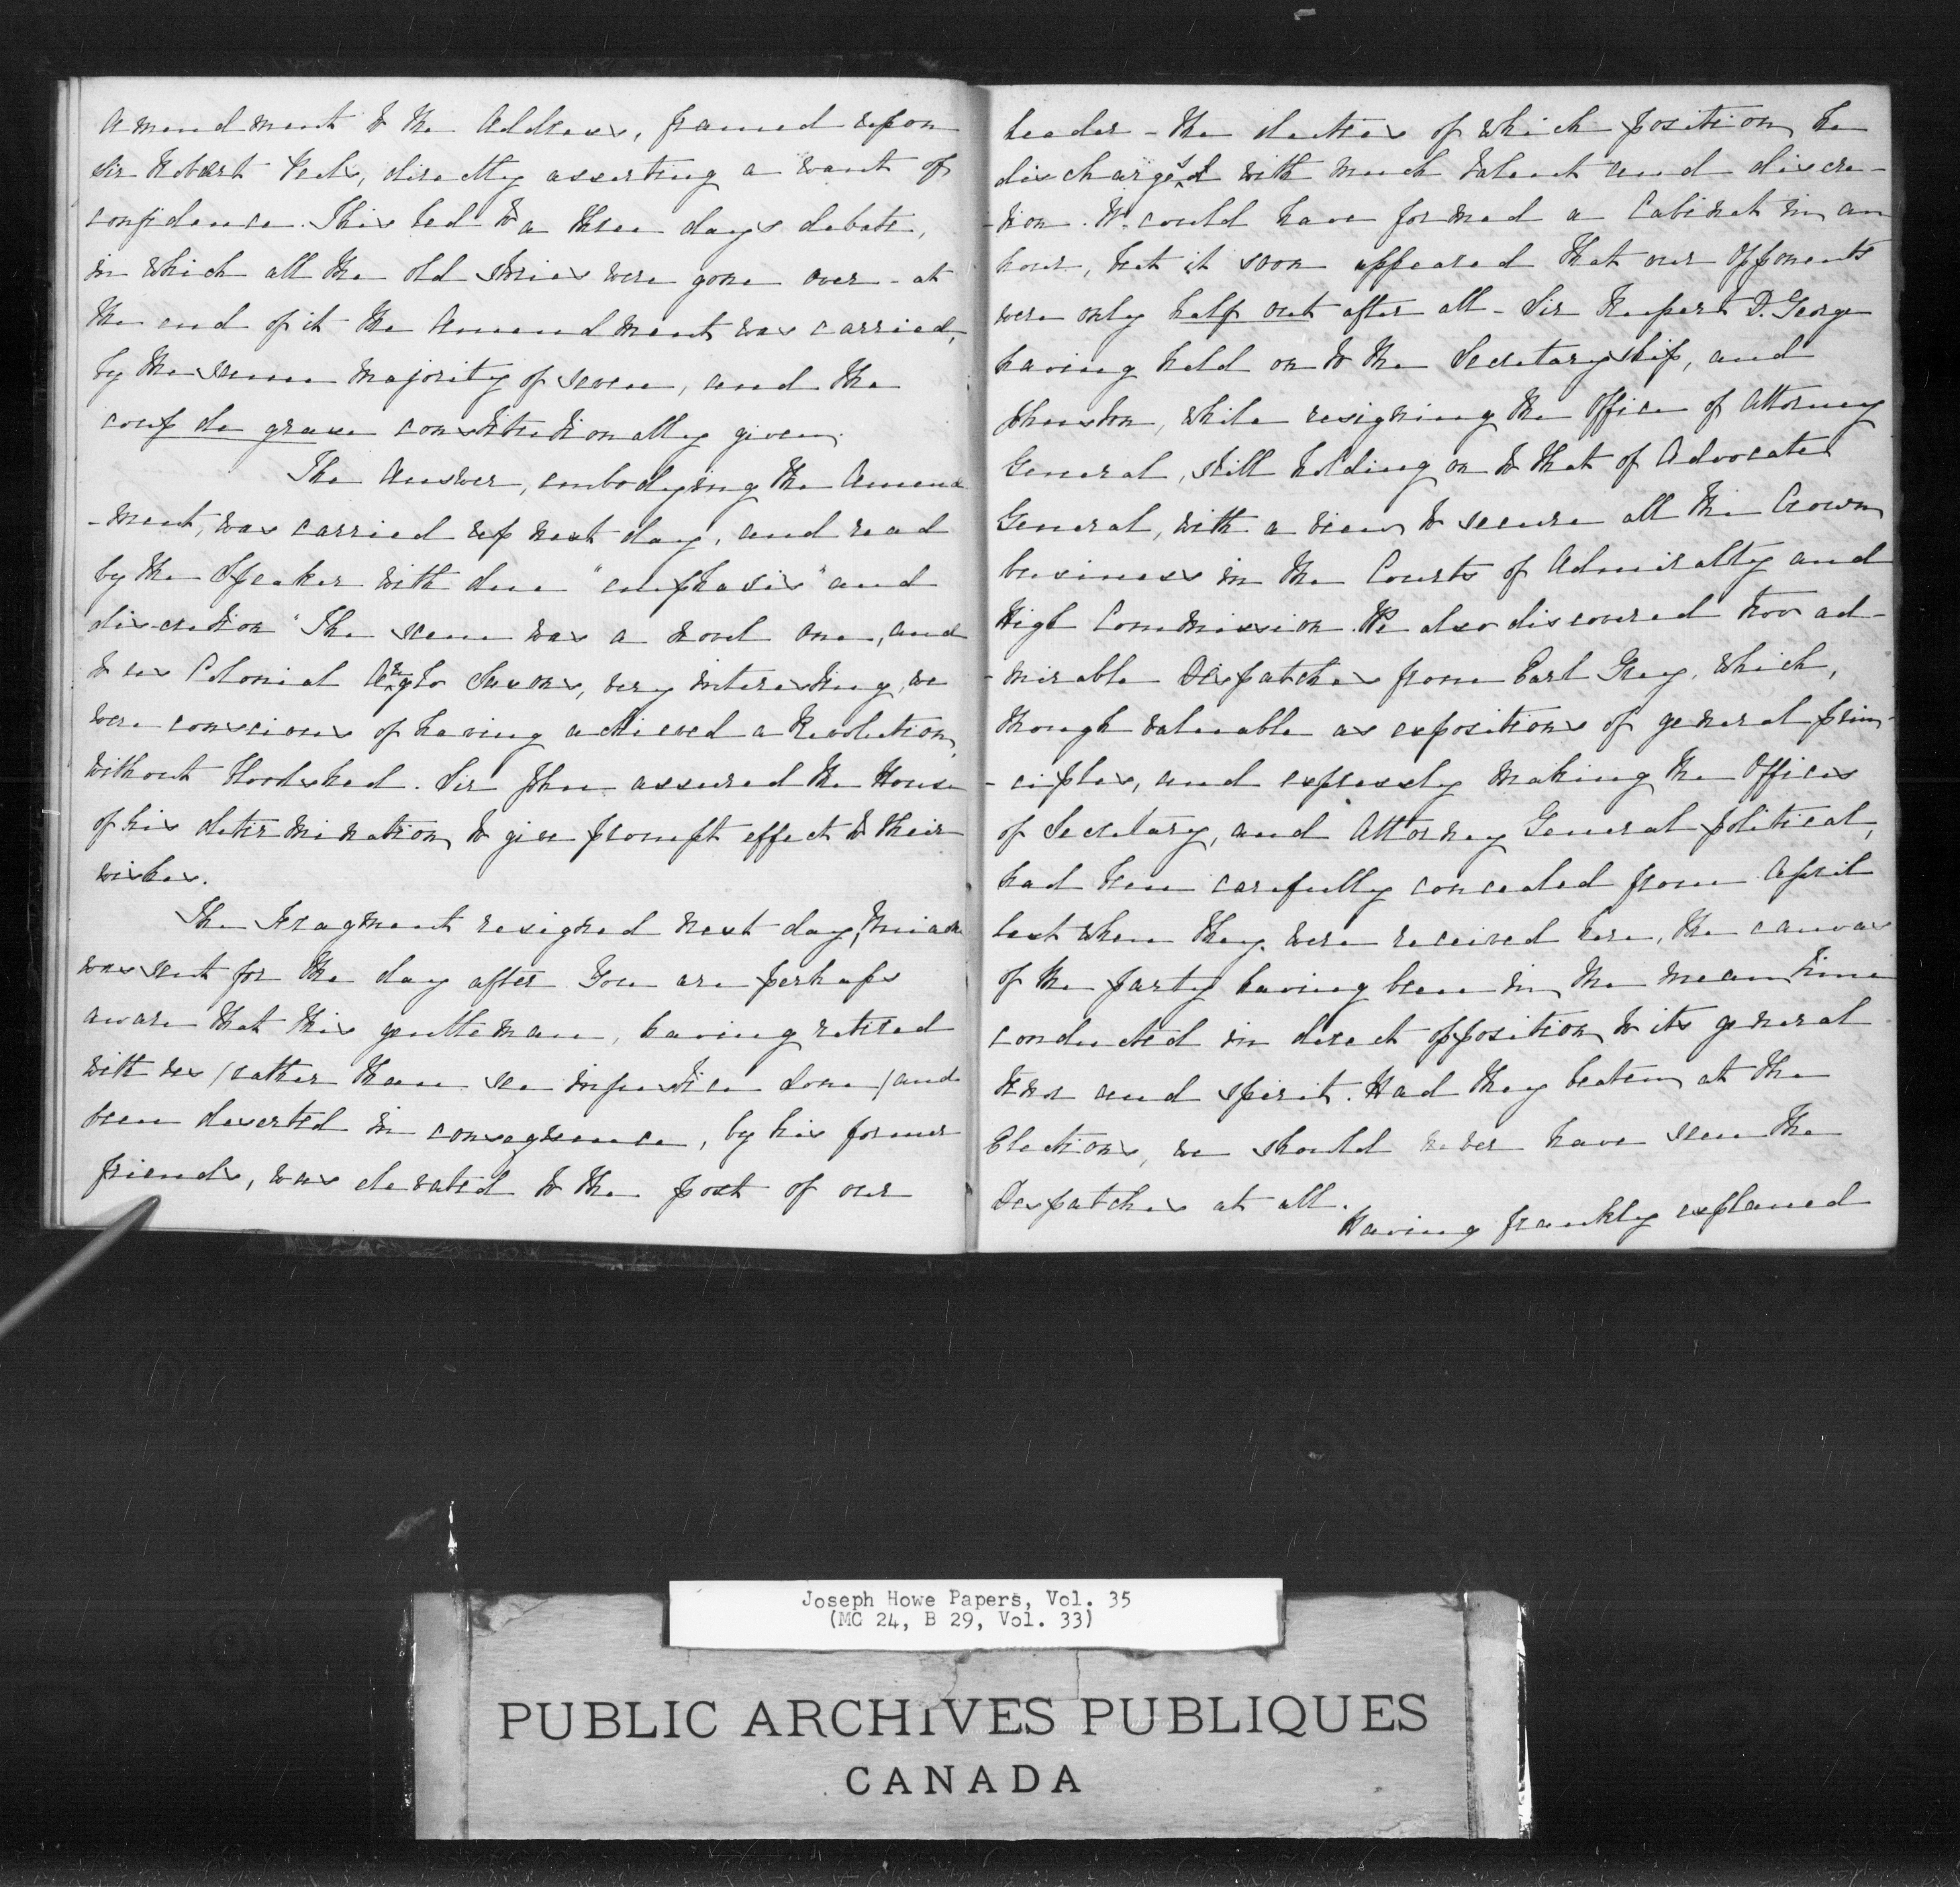 Amendment to the Address, framed upon
Sir Robert Peels, directly asserting a want of
confidence. This led to a three days debate,
in which all the old stories were gone over - at
the end of it the Amendment was carried,
by the same majority of seven, and the
coup de grace constitutionally given.
The Answer, embodying the Amend
-ment, was carried up next day, and read
by the Speaker with due "emphasis" and
discretion" The scene was a novel one, and
to us Colonial Anglo Saxons, very interesting, we
were conscious of having achieved a Revolution,
without bloodshed. Sir John assured the House
of his determination to give prompt effect to their
wishes.
The Fragment resigned next day, Uniacke
was sent for the day after. You are perhaps
aware that this gentleman, having retired
with us (rather than see injustice done) and
been deserted in consequence, by his former
friends, was elevated to the post of our
leader - the duties of which position he
discharges with much talent and discre-
-tion. We could have formed a Cabinet in an
hour, but it soon appeared that our Opponents
were only half out after all - Sir Rupert D. George
having held on to the Secretaryship, and
Johnston, while resigning the Office of Attorney
General, still holding on to that of Advocate
General, with a view to secure all the Crown
business in the Courts of Admiralty and
High Commission. We also discovered two ad-
-mirable Despatches from Earl Grey, which,
though valuable as expositions of general prin-
-ciples, and expressly making the Offices
of Secretary, and Attorney General political,
had been carefully concealed from April
last when they were received here, the canvas
of the party having been in the mean time
conducted in direct opposition to its general
tenor and spirit. Had they beaten at the
Elections, we should never have seen the
Despatches at all.
Having frankly explained
Joseph Howe Papers, Vol. 35
(MG 24, B 29, Vol. 33)
PUBLIC ARCHIVES PUBLIQUES
CANADA